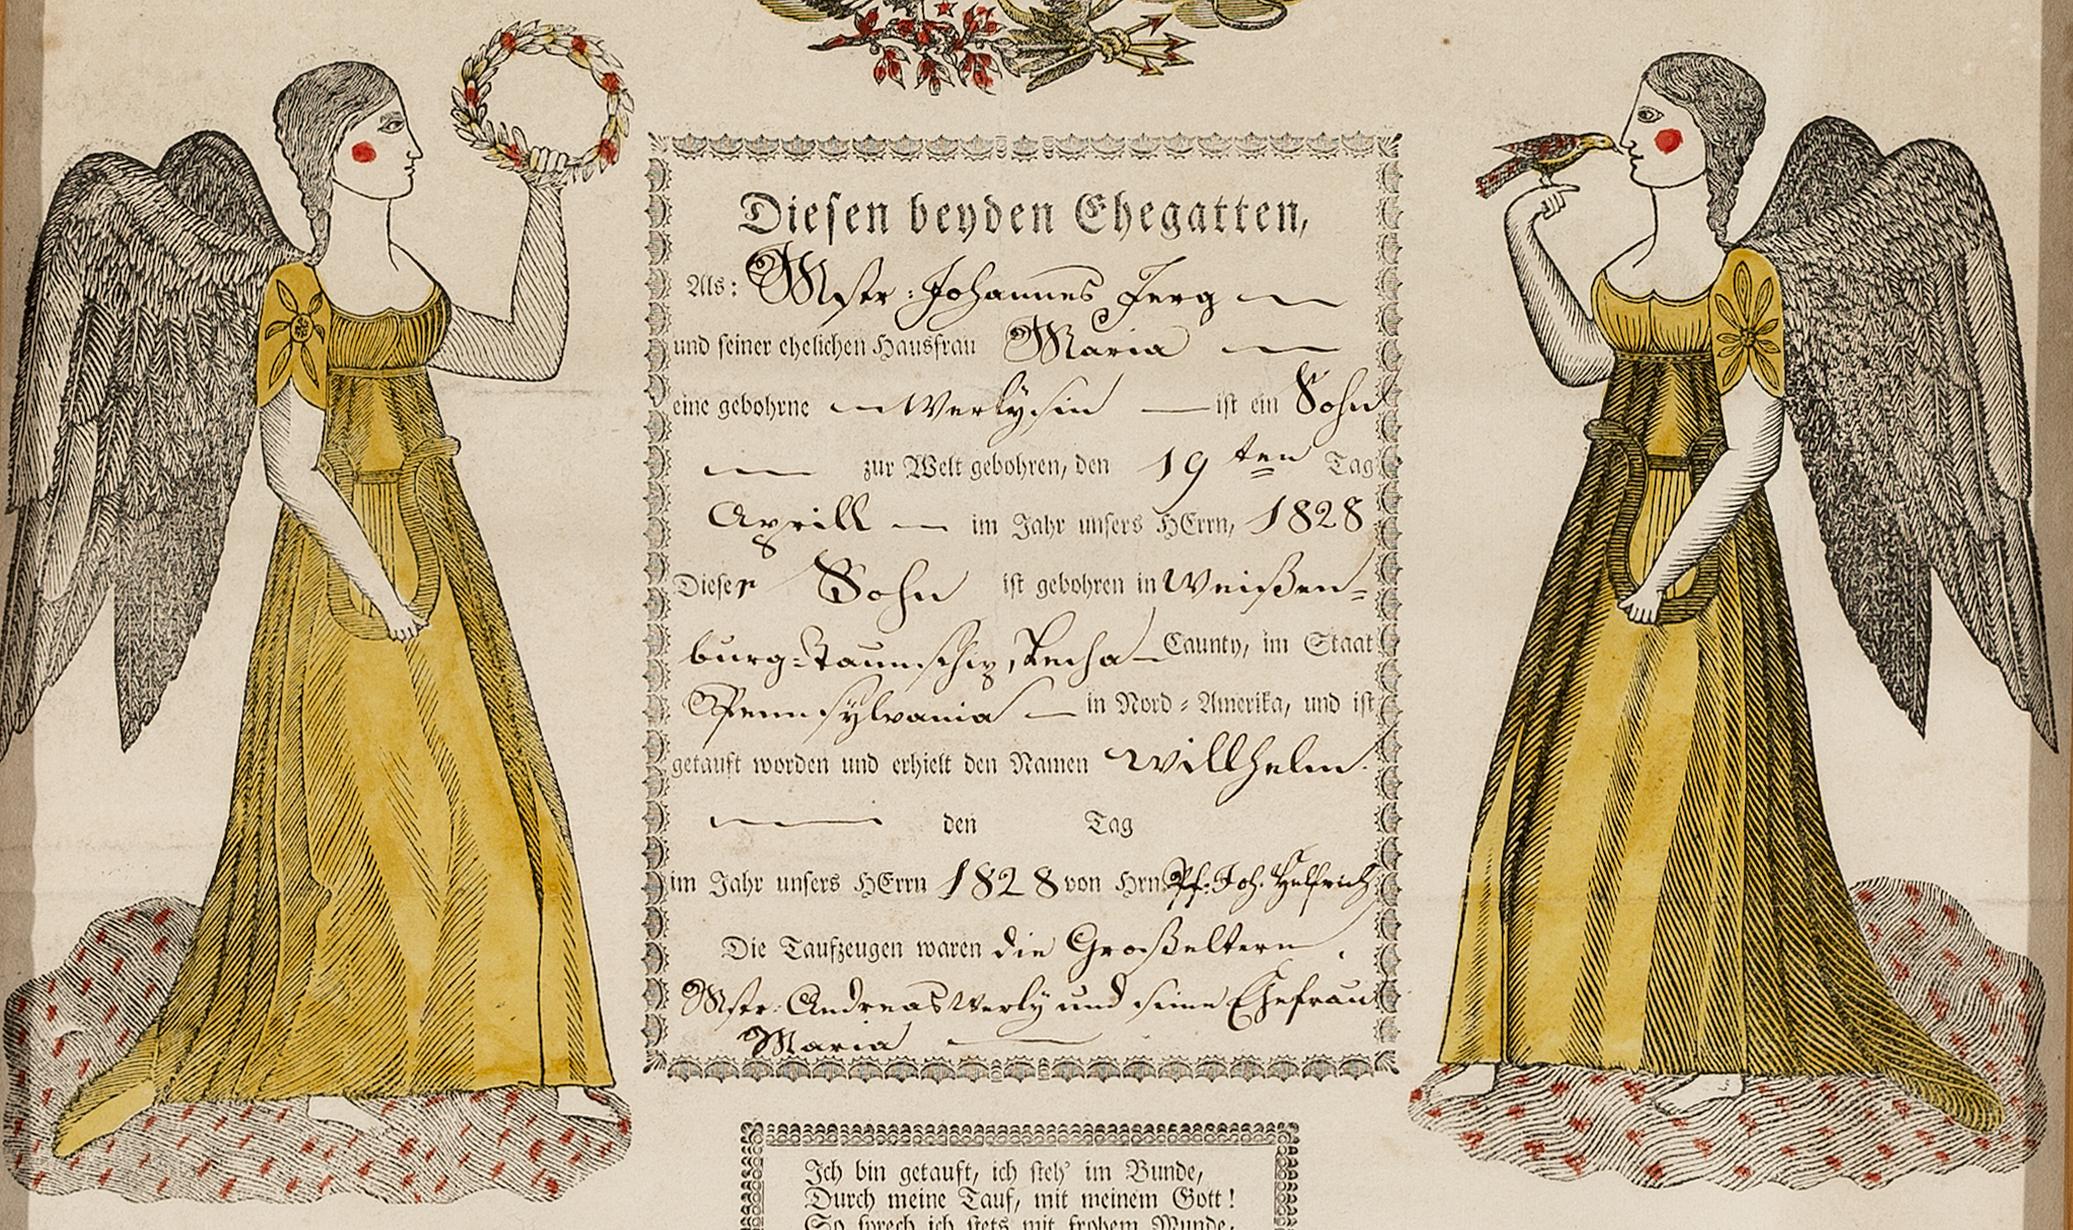 Diesen beyden Ehegatten,
Als: Mstr: Johannes Jerg
und seiner ehelichen Hausfrau Maria
eine gebohrne Werlysin ist ein Sohn
zur Welt gebohren, den 19ten Tag
Aprill im Jahr unsers HErrn, 1828
Dieser Sohn ist gebohren in Weißen-
burg-Taunschip, Lecha Caunty, im Staat
Pennsylvania in Nord-Amerika, und ist
getauft worden und erhielt den Namen Willhelm.
den Tag
im Jahr unsers HErrn 1828 von Hrn. Pf: Joh. Helfrich
Die Taufzeugen waren die Großeltern
Mstr: Andreas Werly und seine Ehefrau
Maria
Ich bin getauft, ich steh' im Bunde,
Durch meine Tauf, mit meinem Gott!
So sprech ich stets mit frohem Munde,